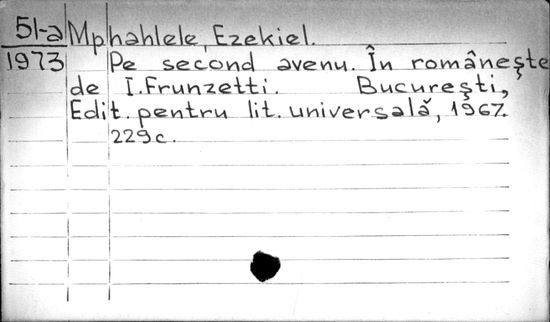 51-a Mphahlele, Ezekiel.
1973 Pe second avenu. În românește
de I. Frunzetti. București,
Edit. pentru lit. universală, 1967.
229c.